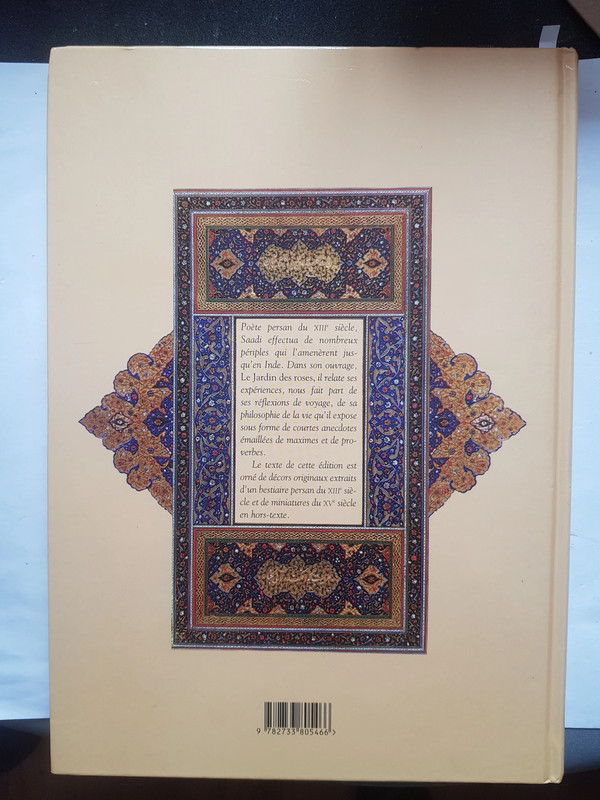 Poète persan du XIIIe siècle,
Saadi effectua de nombreux
périples qui l'amenèrent jus-
qu'en Inde. Dans son ouvrage,
Le Jardin des roses, il relate ses
expériences, nous fait part de
ses réflexions de voyage, de sa
philosophie de la vie qu'il expose
sous forme de courtes anecdotes
émaillées de maximes et de pro-
verbes.
Le texte de cette édition est
orné de décors originaux extraits
d'un bestiaire persan du XIIIe siè-
cle et de miniatures du XVe siècle
en hors-texte.
9 782733 805466 >